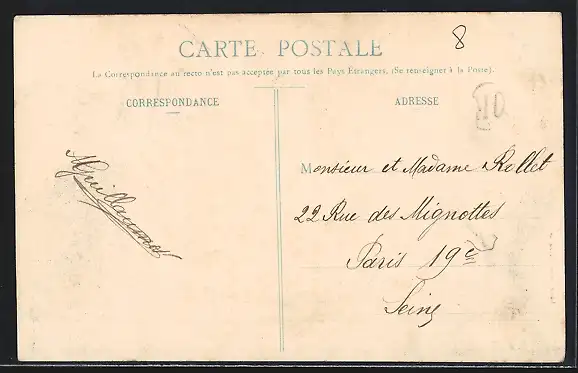 8
CARTE POSTALE
La Correspondance au recto n'est pas acceptée par tous les Pays Étrangers. (Se renseigner à la Poste).
CORRESPONDANCE
ADRESSE
OR
Guillaume
Monsieur et Madame Rollet
22 Rue des Mignottes
Paris 19e
Seine